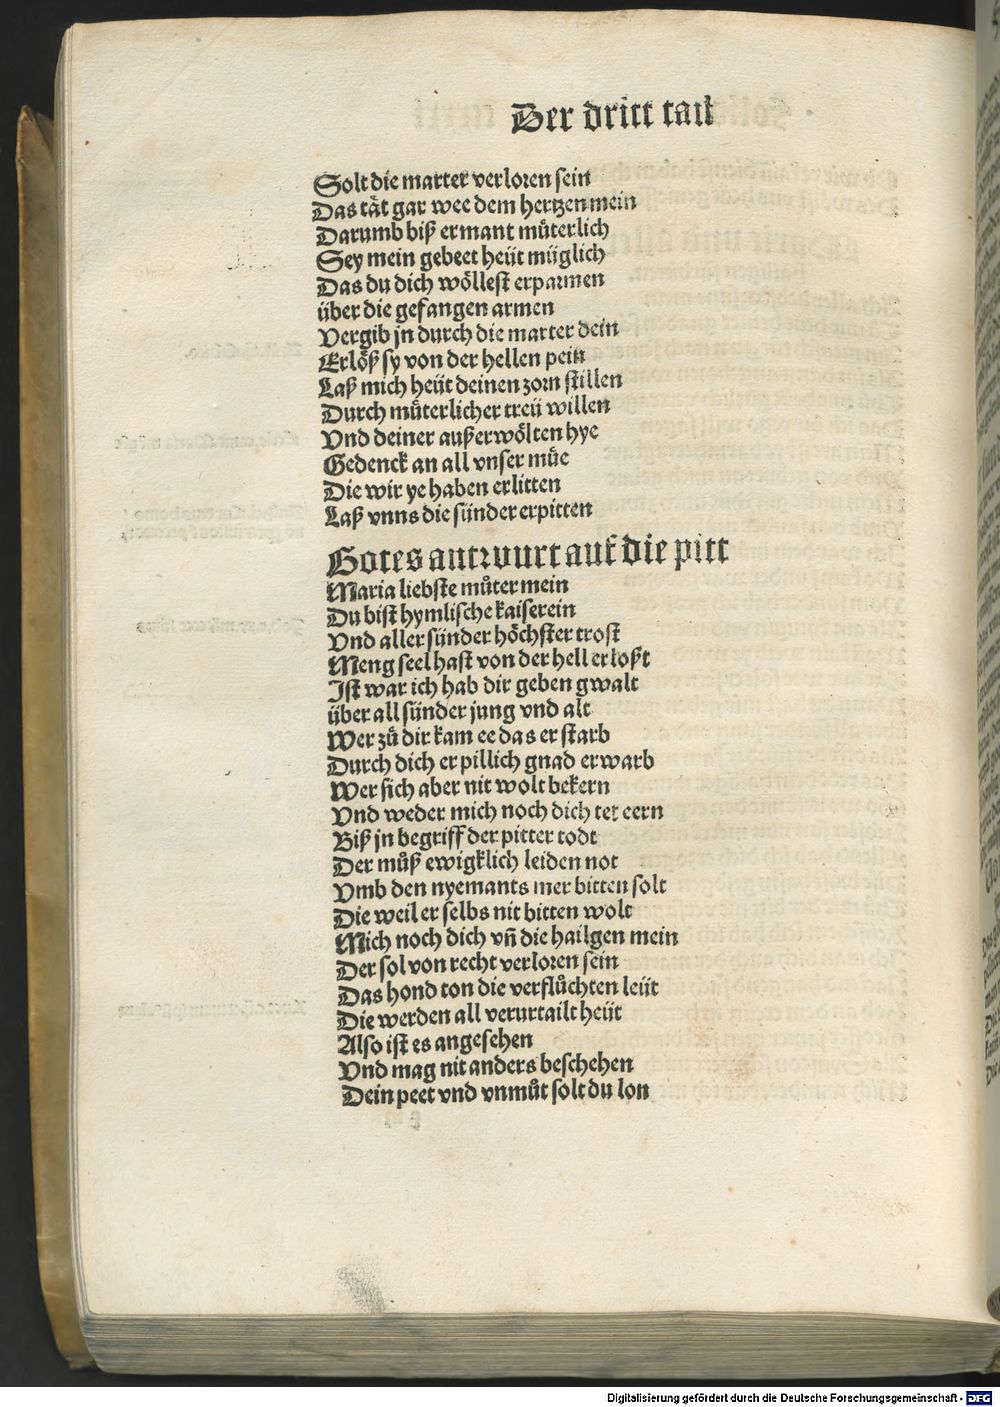 Der dritt tail
Solt die marter verloren sein
Das tät gar wee dem hertzen mein
Darumb biß ermant můterlich
Sey mein gebeet heüt müglich
Das du dich wöllest erparmen
über die gefangen armen
Vergib jn durch die marter dein
Erlöß sy von der hellen pein
Laß mich heüt deinen zorn stillen
Durch můterlicher treü willen
Vnd deiner außerwölten hye
Gedenck an all vnser müe
Die wir ye haben erlitten
Laß vnns die sünder erpitten
Gotes antwurt auf die pitt
Maria liebste můter mein
Du bist hymlische kaiserein
Vnd aller sünder höchster trost
Meng seel hast von der hell erloßt
Ist war ich hab dir geben gwalt
über all sünder jung vnd alt
Wer zů dir kam ee das er starb
Durch dich er pillich gnad erwarb
Wer sich aber nit wolt bekern
Vnd weder mich noch dich tet eern
Biß jn begriff der pitter todt
Der můß ewigklich leiden not
Vmb den nyemants mer bitten solt
Die weil er selbs nit bitten wolt
Mich noch dich vñ die hailgen mein
Der sol von recht verloren sein
Das hond ton die verflůchten leüt
Die werden all verurtailt heüt
Also ist es angesehen
Vnd mag nit anders beschehen
Dein peet vnd vnmůt solt du lon
Digitalisierung gefördert durch die Deutsche Forschungsgemeinschaft - DFG